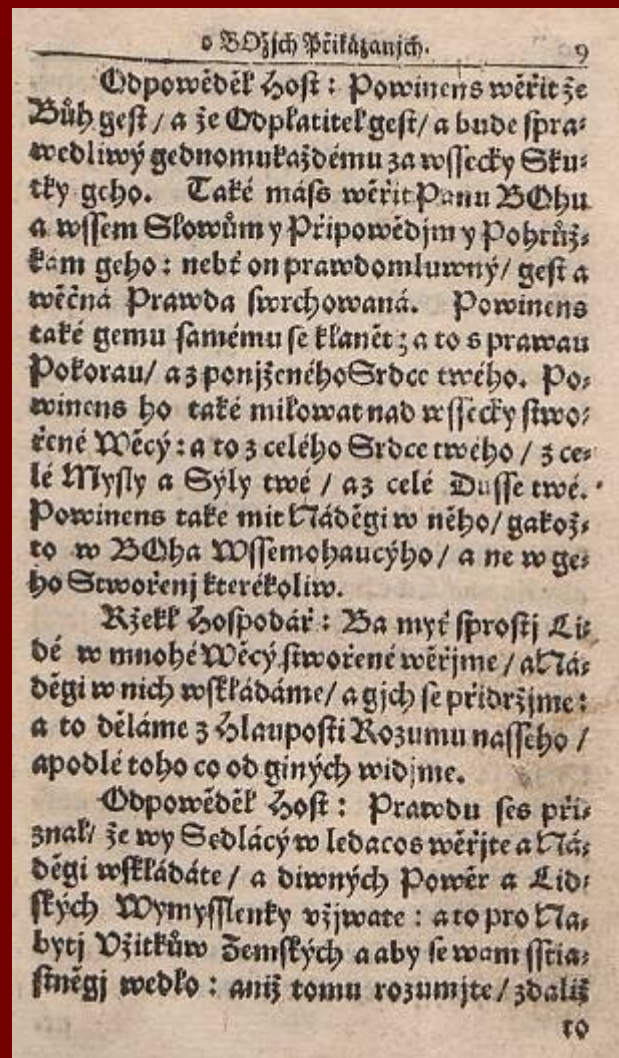 o BOžjch Přikázanjch. 9
Odpowěděl Host : Powinens wěřit že
Bůh gest / a že Odplatitel gest / a bude spra-
wedliwý gednomukaždému za wssecky Sku-
tky geho. Také máss wěřit Panu BOhu
a wssem Slowům y Připowědjm y Pohrůž-
kám geho : nebť on prawdomluwný / gest a
wěčná Prawda swrchowaná. Powinens
také gemu samému se klanět ; a to s prawau
Pokorau / a z ponjženého Srdce twého. Po-
winens ho také milowat nad wssecky stwo-
řené Wěcý : a to z celého Srdce twého / z ce-
lé Mysly a Sýly twé / a z celé Dusse twé.
Powinens take mit Náděgi w něho / gakož-
to w BOha Wssemohaucýho / a ne w ge-
ho Stwořenj kterékoliw.
Ržekl Hospodář : Ba myť sprostj Li-
dé w mnohé Wěcý stwořené wěřjme / a Ná-
děgi w nich wskládáme / a gjch se přidržjme :
a to děláme z Hlauposti Rozumu nasseho /
a podlé toho co od giných widjme.
Odpowěděl Host : Prawdu ses při-
znal / že wy Sedlácý w ledacos wěřjte a Ná-
děgi wskládáte / a diwných Powěr a Lid-
ských Wymysslenky vžjwate : a to pro Na-
bytj Vžitkůw Zemských a aby se wam sstia-
stněgj wedlo : aniž tomu rozumjte / zdaliž
to